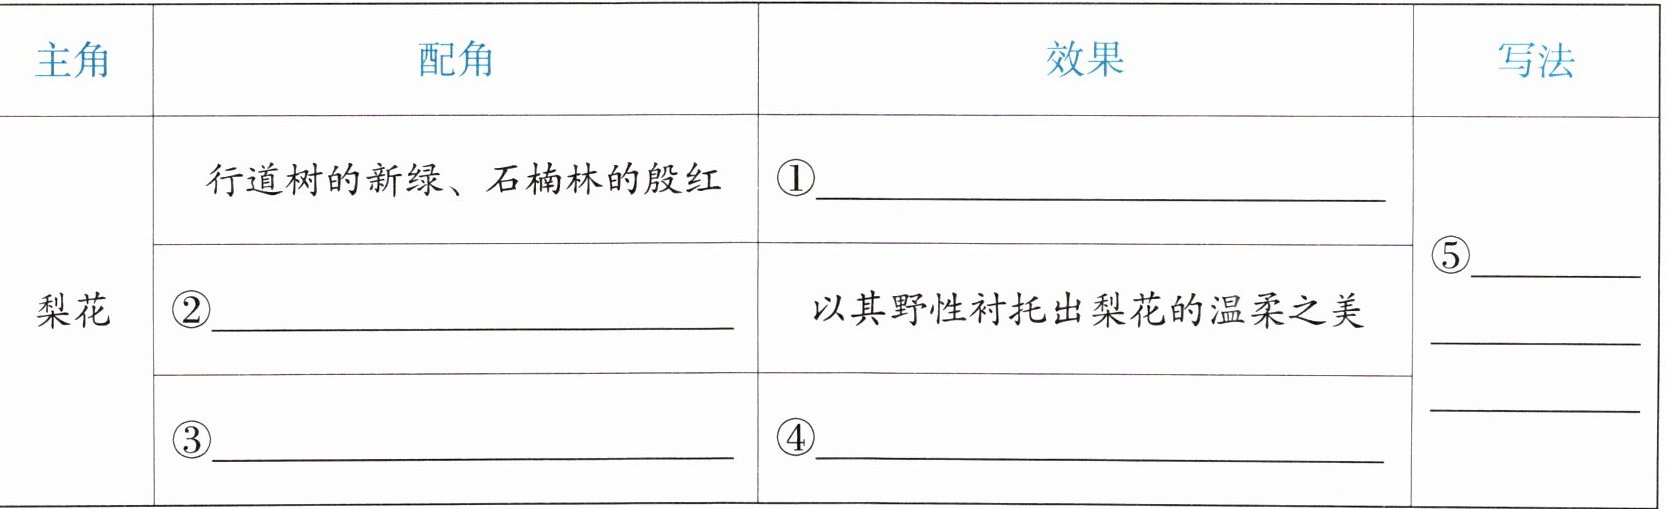 主角 配角 效果 写法
行道树的新绿、石楠林的殷红 ①
⑤
梨花 ② 以其野性衬托出梨花的温柔之美
③ ④